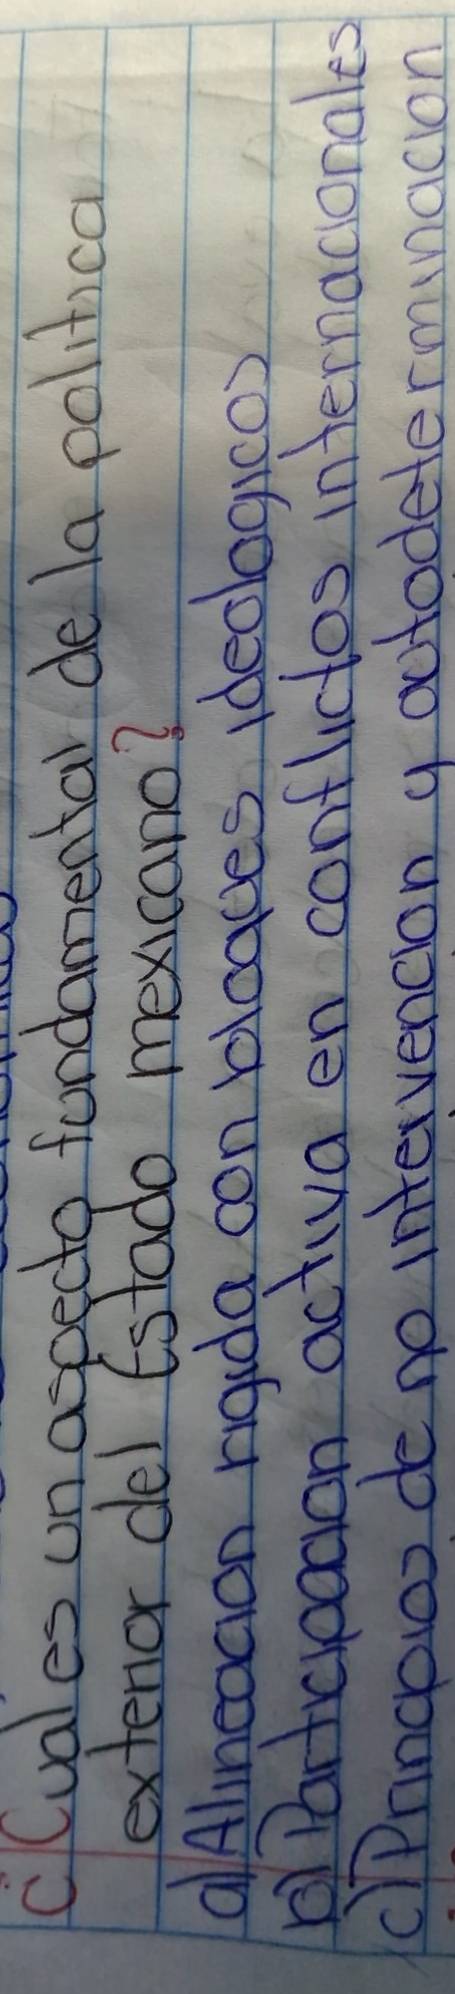 ¿Cual es un aspecto fundamental de la politica
exterior del Estado mexicano?
a) Alineacion rigida con bloques ideologicos
b) Participacion activa en conflictos internacionales
c) Principios de no intervencion y autodeterminacion